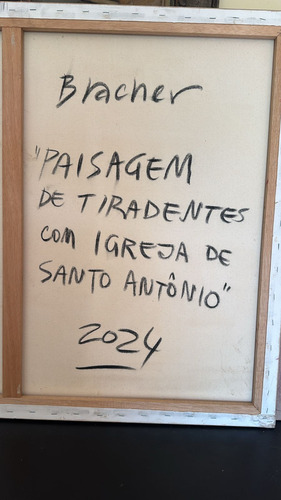 Bracher
"PAISAGEM
DE TIRADENTES
COM IGREJA DE
SANTO ANTÔNIO"
2024